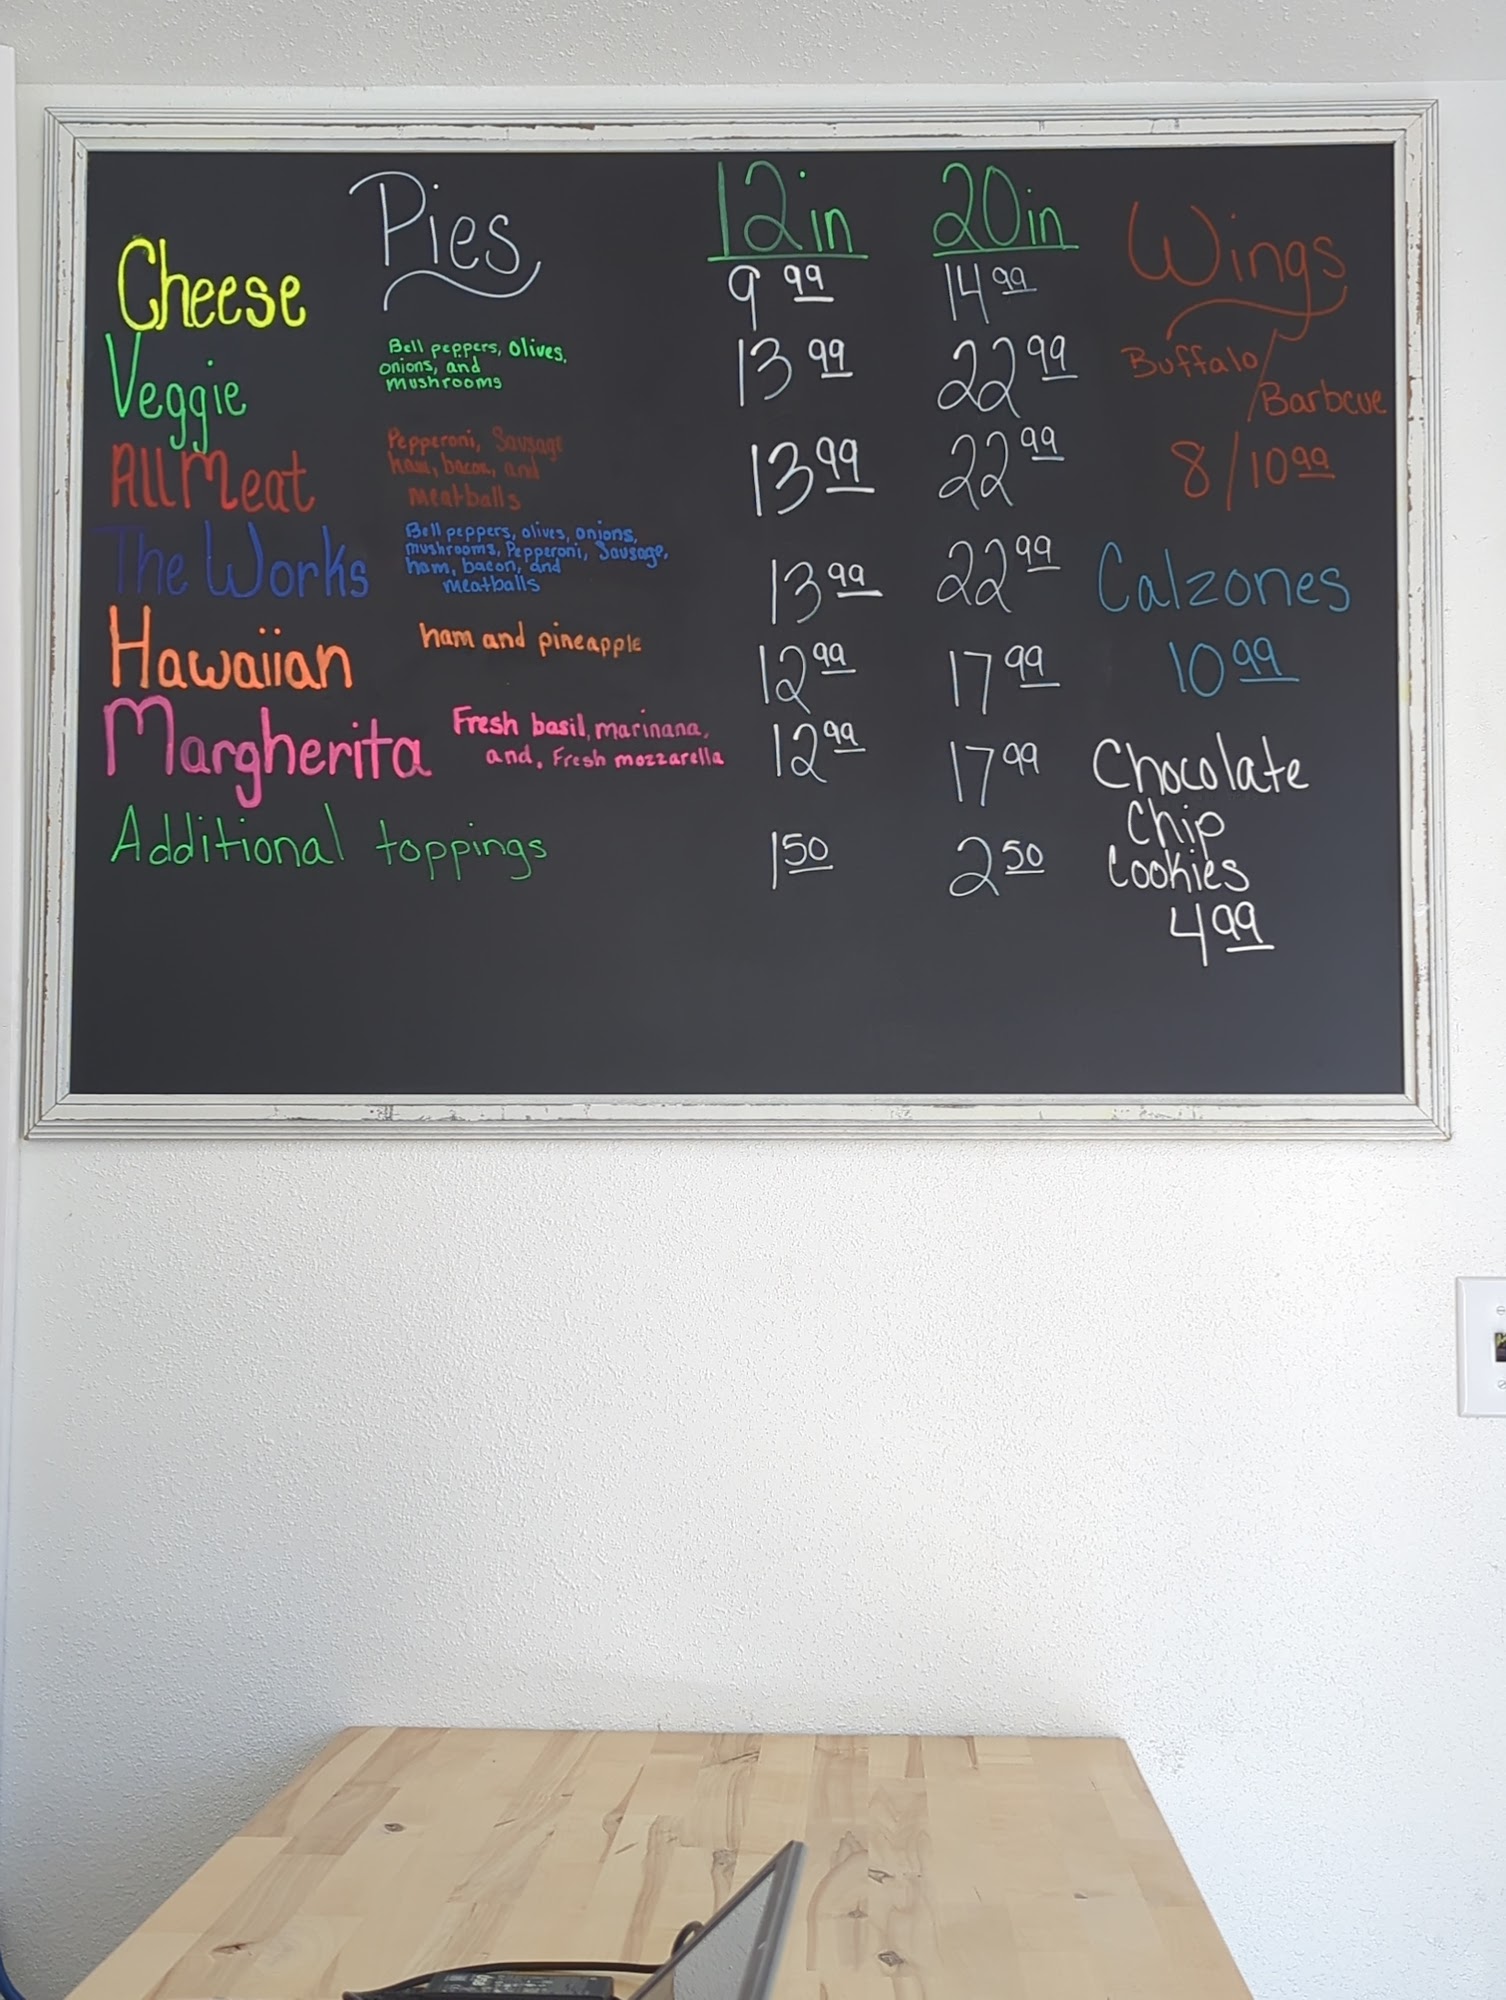 Pies 12in 20in
Cheese 9 99 14 99
Veggie Bell peppers, Olives,
onions, and
mushrooms 13 99 22 99
All Meat Pepperoni, Sausage
ham, bacon, and
meatballs 13 99 22 99
The Works Bell peppers, olives, onions,
mushrooms, Pepperoni, Sausage,
ham, bacon, and
meatballs 13 99 22 99
Hawaiian ham and pineapple 12 99 17 99
Margherita Fresh basil, marinana,
and, Fresh mozzarella 12 99 17 99
Additional toppings 1 50 2 50
Wings
Buffalo/
Barbcue
8/10 99
Calzones
10 99
Chocolate
Chip
Cookies
4 99